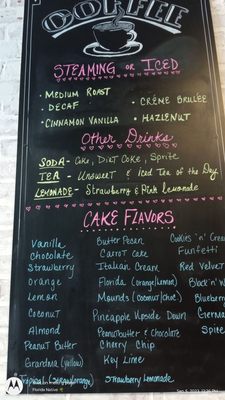 COFFEE
STEAMING OR ICED
• MEDIUM ROAST
• DECAF
• CINNAMON VANILLA
• CRÈME BRULÉE
• HAZELNUT
Other Drinks
SODA - Coke, Diet Coke, Sprite
TEA - Unsweet & Iced Tea of the Day
LEMONADE - Strawberry & Pink Lemonade
CAKE FLAVORS
Vanilla
Chocolate
Strawberry
Orange
Lemon
Coconut
Almond
Peanut Butter
Grandma (yellow)
Tropical (straw/orange)
Butter Pecan
Carrot Cake
Italian Cream
Florida (orange/lemon)
Mounds (coconut/choc)
Pineapple Upside Down
Peanutbutter & Chocolate
Cherry Chip
Key Lime
Strawberry Lemonade
Cookies 'n' Crea
Funfetti
Red Velvet
Black 'n' W
Blueberry
Germa
Spice
Florida Native